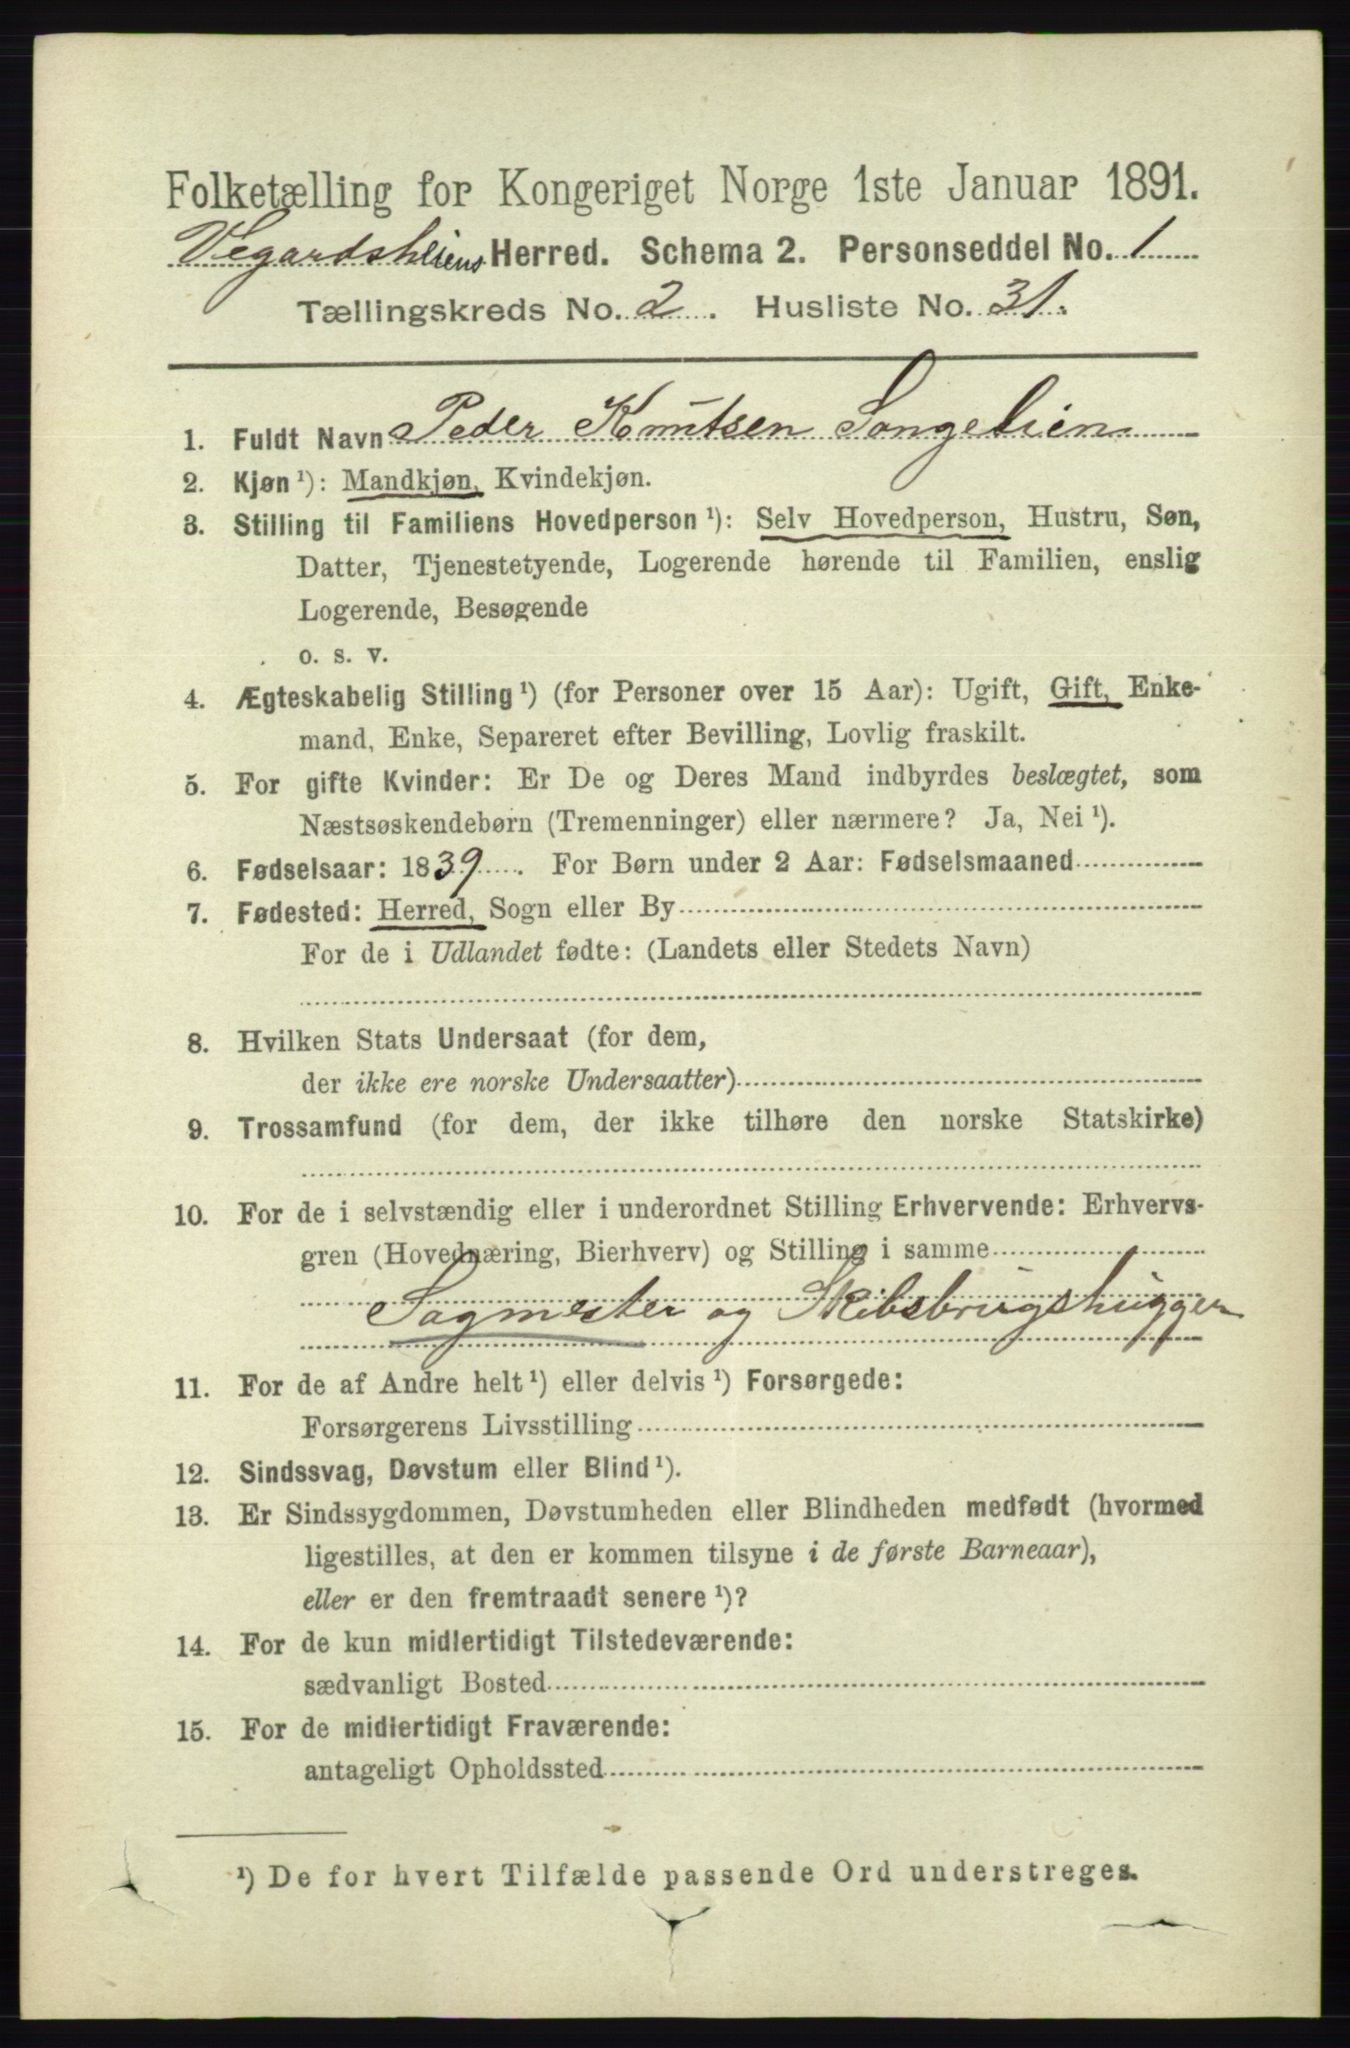 Folketælling for Kongeriget Norge 1ste Januar 1891.
Vegardsheiens Herred. Schema 2. Personseddel No. 1
Tællingskreds No. 2. Husliste No. 31.
1. Fuldt Navn Peder Knutsen Songelien
2. Kjøn ¹): Mandkjøn, Kvindekjøn.
3. Stilling til Familiens Hovedperson ¹): Selv Hovedperson, Hustru, Søn,
Datter, Tjenestetyende, Logerende hørende til Familien, enslig
Logerende, Besøgende
o. s. v.
4. Ægteskabelig Stilling ¹) (for Personer over 15 Aar): Ugift, Gift, Enke-
mand, Enke, Separeret efter Bevilling, Lovlig fraskilt.
5. For gifte Kvinder: Er De og Deres Mand indbyrdes beslægtet, som
Næstsøskendebørn (Tremenninger) eller nærmere? Ja, Nei ¹).
6. Fødselsaar: 1839. For Børn under 2 Aar: Fødselsmaaned
7. Fødested: Herred, Sogn eller By
For de i Udlandet fødte: (Landets eller Stedets Navn)
8. Hvilken Stats Undersaat (for dem,
der ikke ere norske Undersaatter)
9. Trossamfund (for dem, der ikke tilhøre den norske Statskirke)
10. For de i selvstændig eller i underordnet Stilling Erhvervende: Erhvervs-
gren (Hovednæring, Bierhverv) og Stilling i samme
Sagmester og Skibsbrugshugger
11. For de af Andre helt ¹) eller delvis ¹) Forsørgede:
Forsørgerens Livsstilling
12. Sindssvag, Døvstum eller Blind ¹).
13. Er Sindssygdommen, Døvstumheden eller Blindheden medfødt (hvormed
ligestilles, at den er kommen tilsyne i de første Barneaar),
eller er den fremtraadt senere ¹)?
14. For de kun midlertidigt Tilstedeværende:
sædvanligt Bosted
15. For de midlertidigt Fraværende:
antageligt Opholdssted
¹) De for hvert Tilfælde passende Ord understreges.